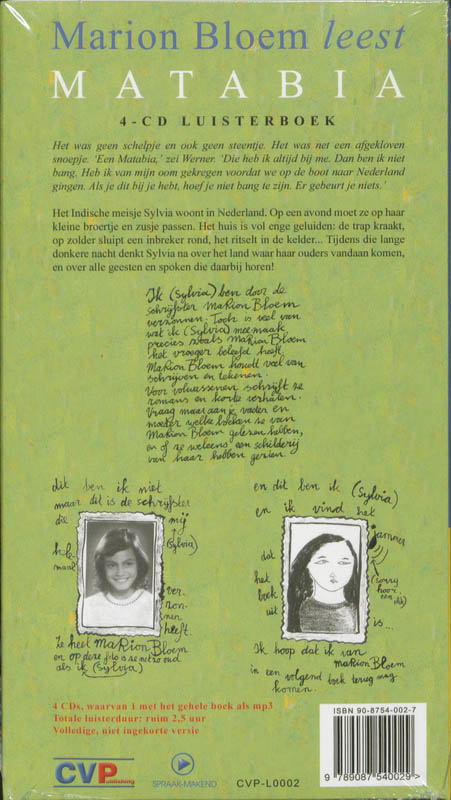 Marion Bloem leest
MATABIA
4-CD LUISTERBOEK
Het was geen schelpje en ook geen steentje. Het was net een afgekloven
snoepje. 'Een Matabia,' zei Werner. 'Die heb ik altijd bij me. Dan ben ik niet
bang. Heb ik van mijn oom gekregen voordat we op de boot naar Nederland
gingen. Als je dit bij je hebt, hoef je niet bang te zijn. Er gebeurt je niets.'
Het Indische meisje Sylvia woont in Nederland. Op een avond moet ze op haar
kleine broertje en zusje passen. Het huis is vol enge geluiden: de trap kraakt,
op zolder sluipt een inbreker rond, het ritselt in de kelder... Tijdens die lange
donkere nacht denkt Sylvia na over het land waar haar ouders vandaan komen,
en over alle geesten en spoken die daarbij horen!
Ik (Sylvia) ben door de
schrijfster MaRion Bloem
verzonnen. Toch is veel van
wat ik (Sylvia) meemaak
precies zoals MaRion Bloem
het vroeger beleefd heeft.
MaRion Bloem houdt veel van
schrijven en tekenen.
Voor volwassenen schrijft ze
romans en korte verhalen.
Vraag maar aan je vader en
moeder welke boeken ze van
MaRion Bloem gelezen hebben,
en of ze weleens een schilderij
van haar hebben gezien.
dit ben ik niet
maar dit is de schrijfster
die mij
(Sylvia)
hele
maal
ver
zon-
nen
heeft.
Ze heet MaRion Bloem
en op deze foto is ze net zo oud
als ik (Sylvia)
en dit ben ik (Sylvia)
en ik vind het
jammer
dat
(sorry
hoor
een
het
boek
uit is...
Ik hoop dat ik van
MaRion Bloem
in een volgend boek terug mag
komen.
4 CDs, waarvan 1 met het gehele boek als mp3
Totale luisterduur: ruim 2,5 uur
Volledige, niet ingekorte versie
CVPublishing
SPRAAK-MAKEND
CVP-L0002
ISBN 90-8754-002-7
9 789087 540029 >